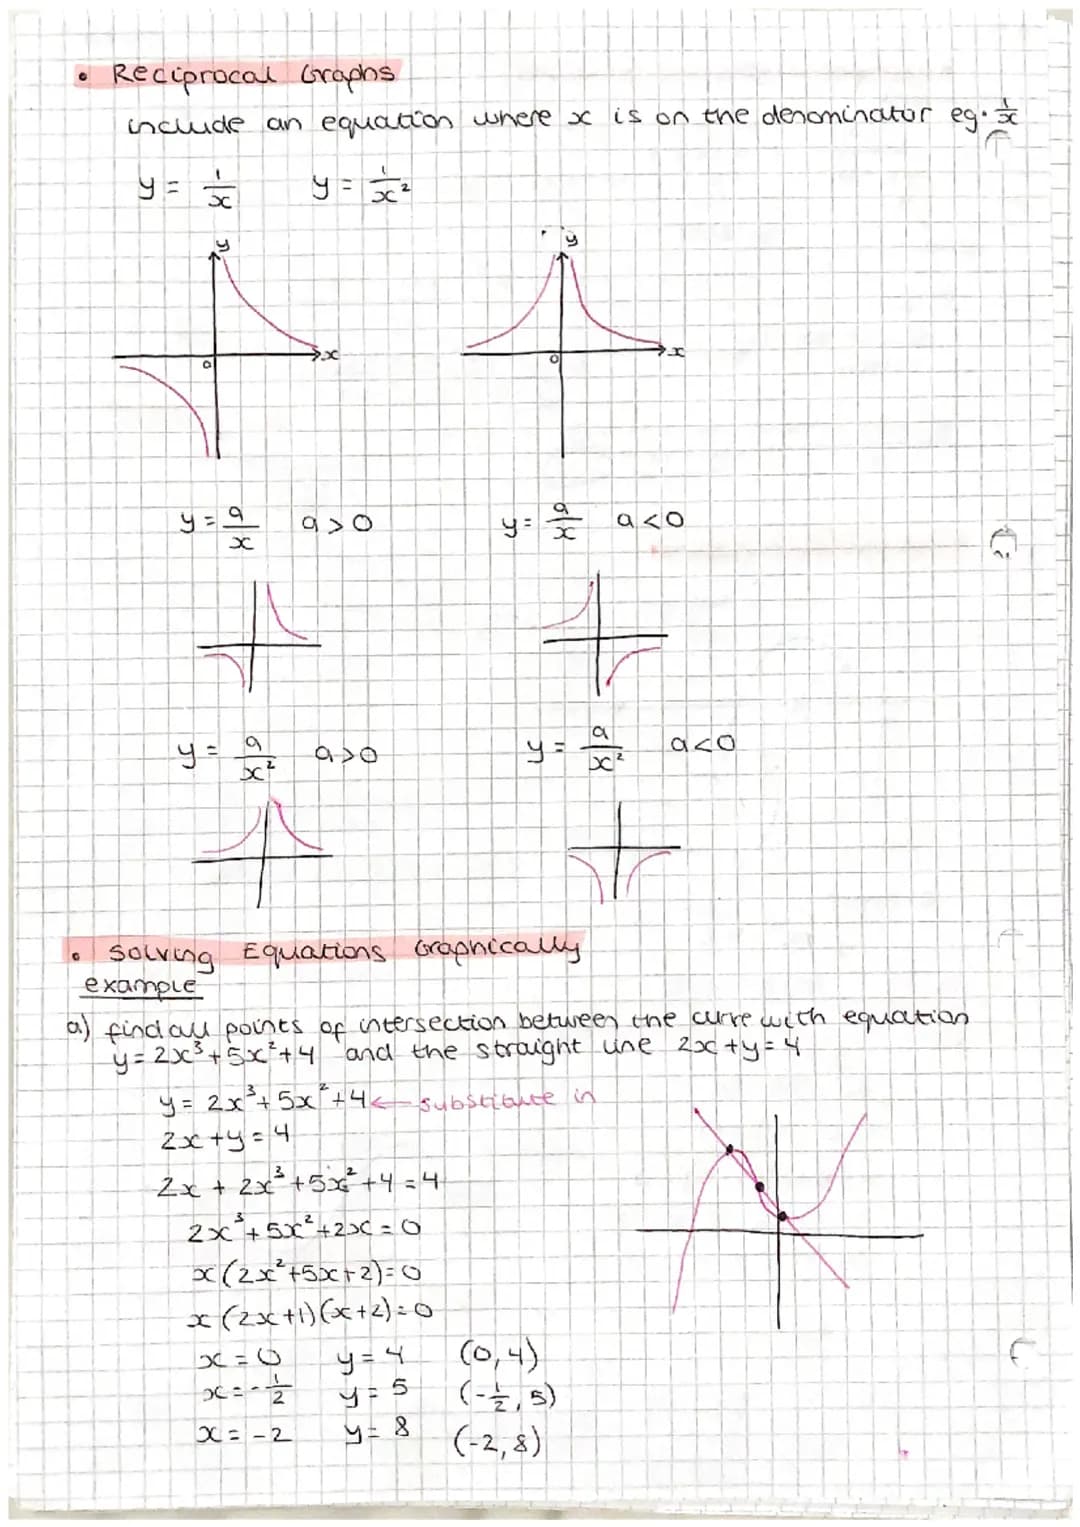 • Reciprocal Graphs
include an equation where x is on the denominator eg. 1/x
y = 1/x y = 1/x²
y y
0 x 0 x
y = a/x a > 0 y = a/x a < 0
y = a/x² a > 0 y = a/x² a < 0
• Solving Equations Graphically
example
a) find all points of intersection between the curve with equation
y = 2x³ + 5x² + 4 and the straight line 2x + y = 4
y = 2x³ + 5x² + 4 ← substitute in
2x + y = 4
2x + 2x³ + 5x² + 4 = 4
2x³ + 5x² + 2x = 0
x(2x² + 5x + 2) = 0
x(2x + 1)(x + 2) = 0
x = 0 y = 4 (0, 4)
x = -1/2 y = 5 (-1/2, 5)
x = -2 y = 8 (-2, 8)